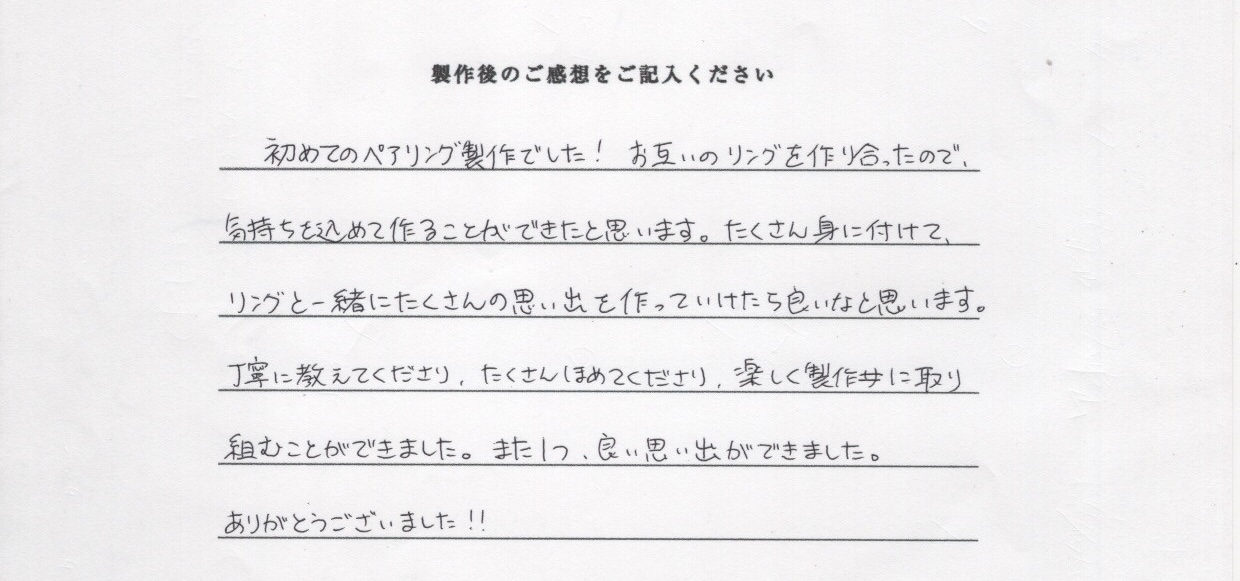 製作後のご感想をご記入ください
初めてのペアリング製作でした! お互いのリングを作り合ったので、
気持ちを込めて作ることができたと思います。たくさん身に付けて、
リングと一緒にたくさんの思い出を作っていけたら良いなと思います。
丁寧に教えてくださり、たくさんほめてくださり、楽しく製作に取り
組むことができました。また1つ、良い思い出ができました。
ありがとうございました!!